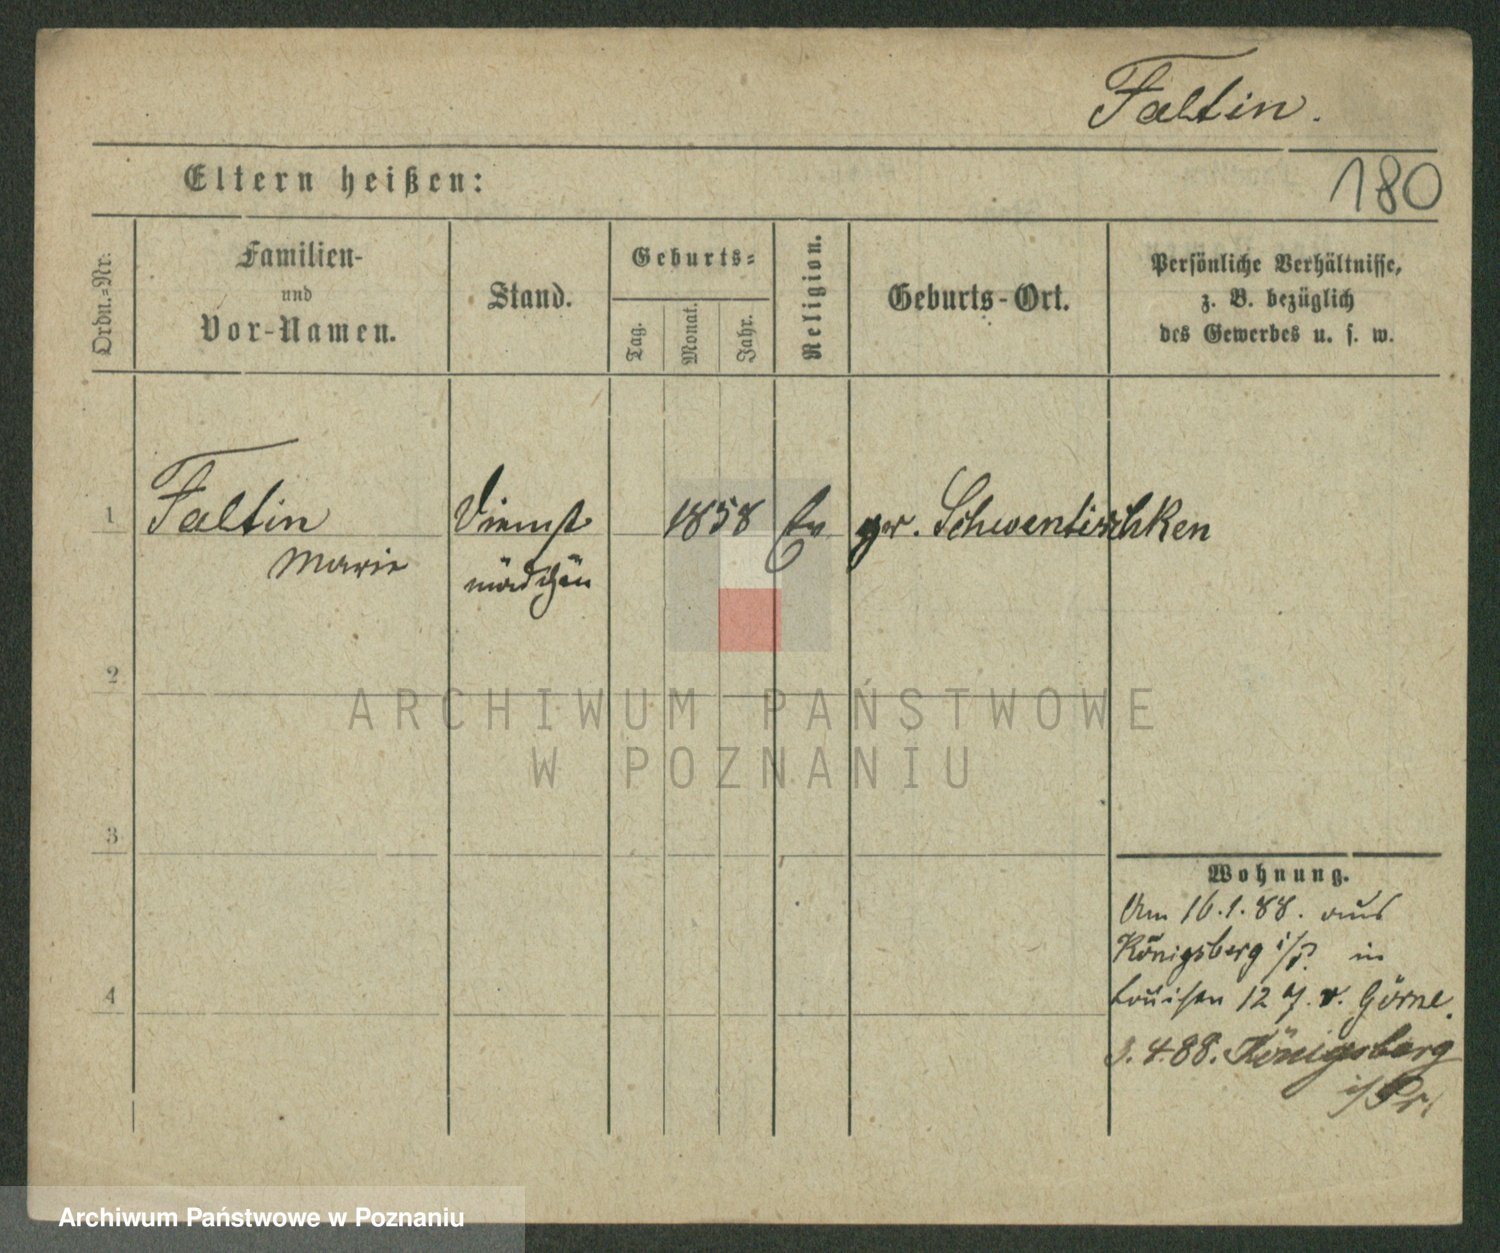 Faltin.
Eltern heißen:
180
Ordn.-Nr.
Familien-
und
Vor-Namen.
Stand.
Geburts-
Tag.
Monat.
Jahr.
Religion.
Geburts-Ort.
Persönliche Verhältnisse,
z. B. bezüglich
des Gewerbes u. s. w.
1 Faltin Dienst 1858 Ev gr. Schwentischken
Marie mädchen
2
ARCHIWUM PAŃSTWOWE
W POZNANIU
3
Wohnung.
Am 16.1.88. aus
Königsberg i/P. in
4
Louisen 12 b. v. Görne.
3.4.88. Königsberg
i/Pr.
Archiwum Państwowe w Poznaniu